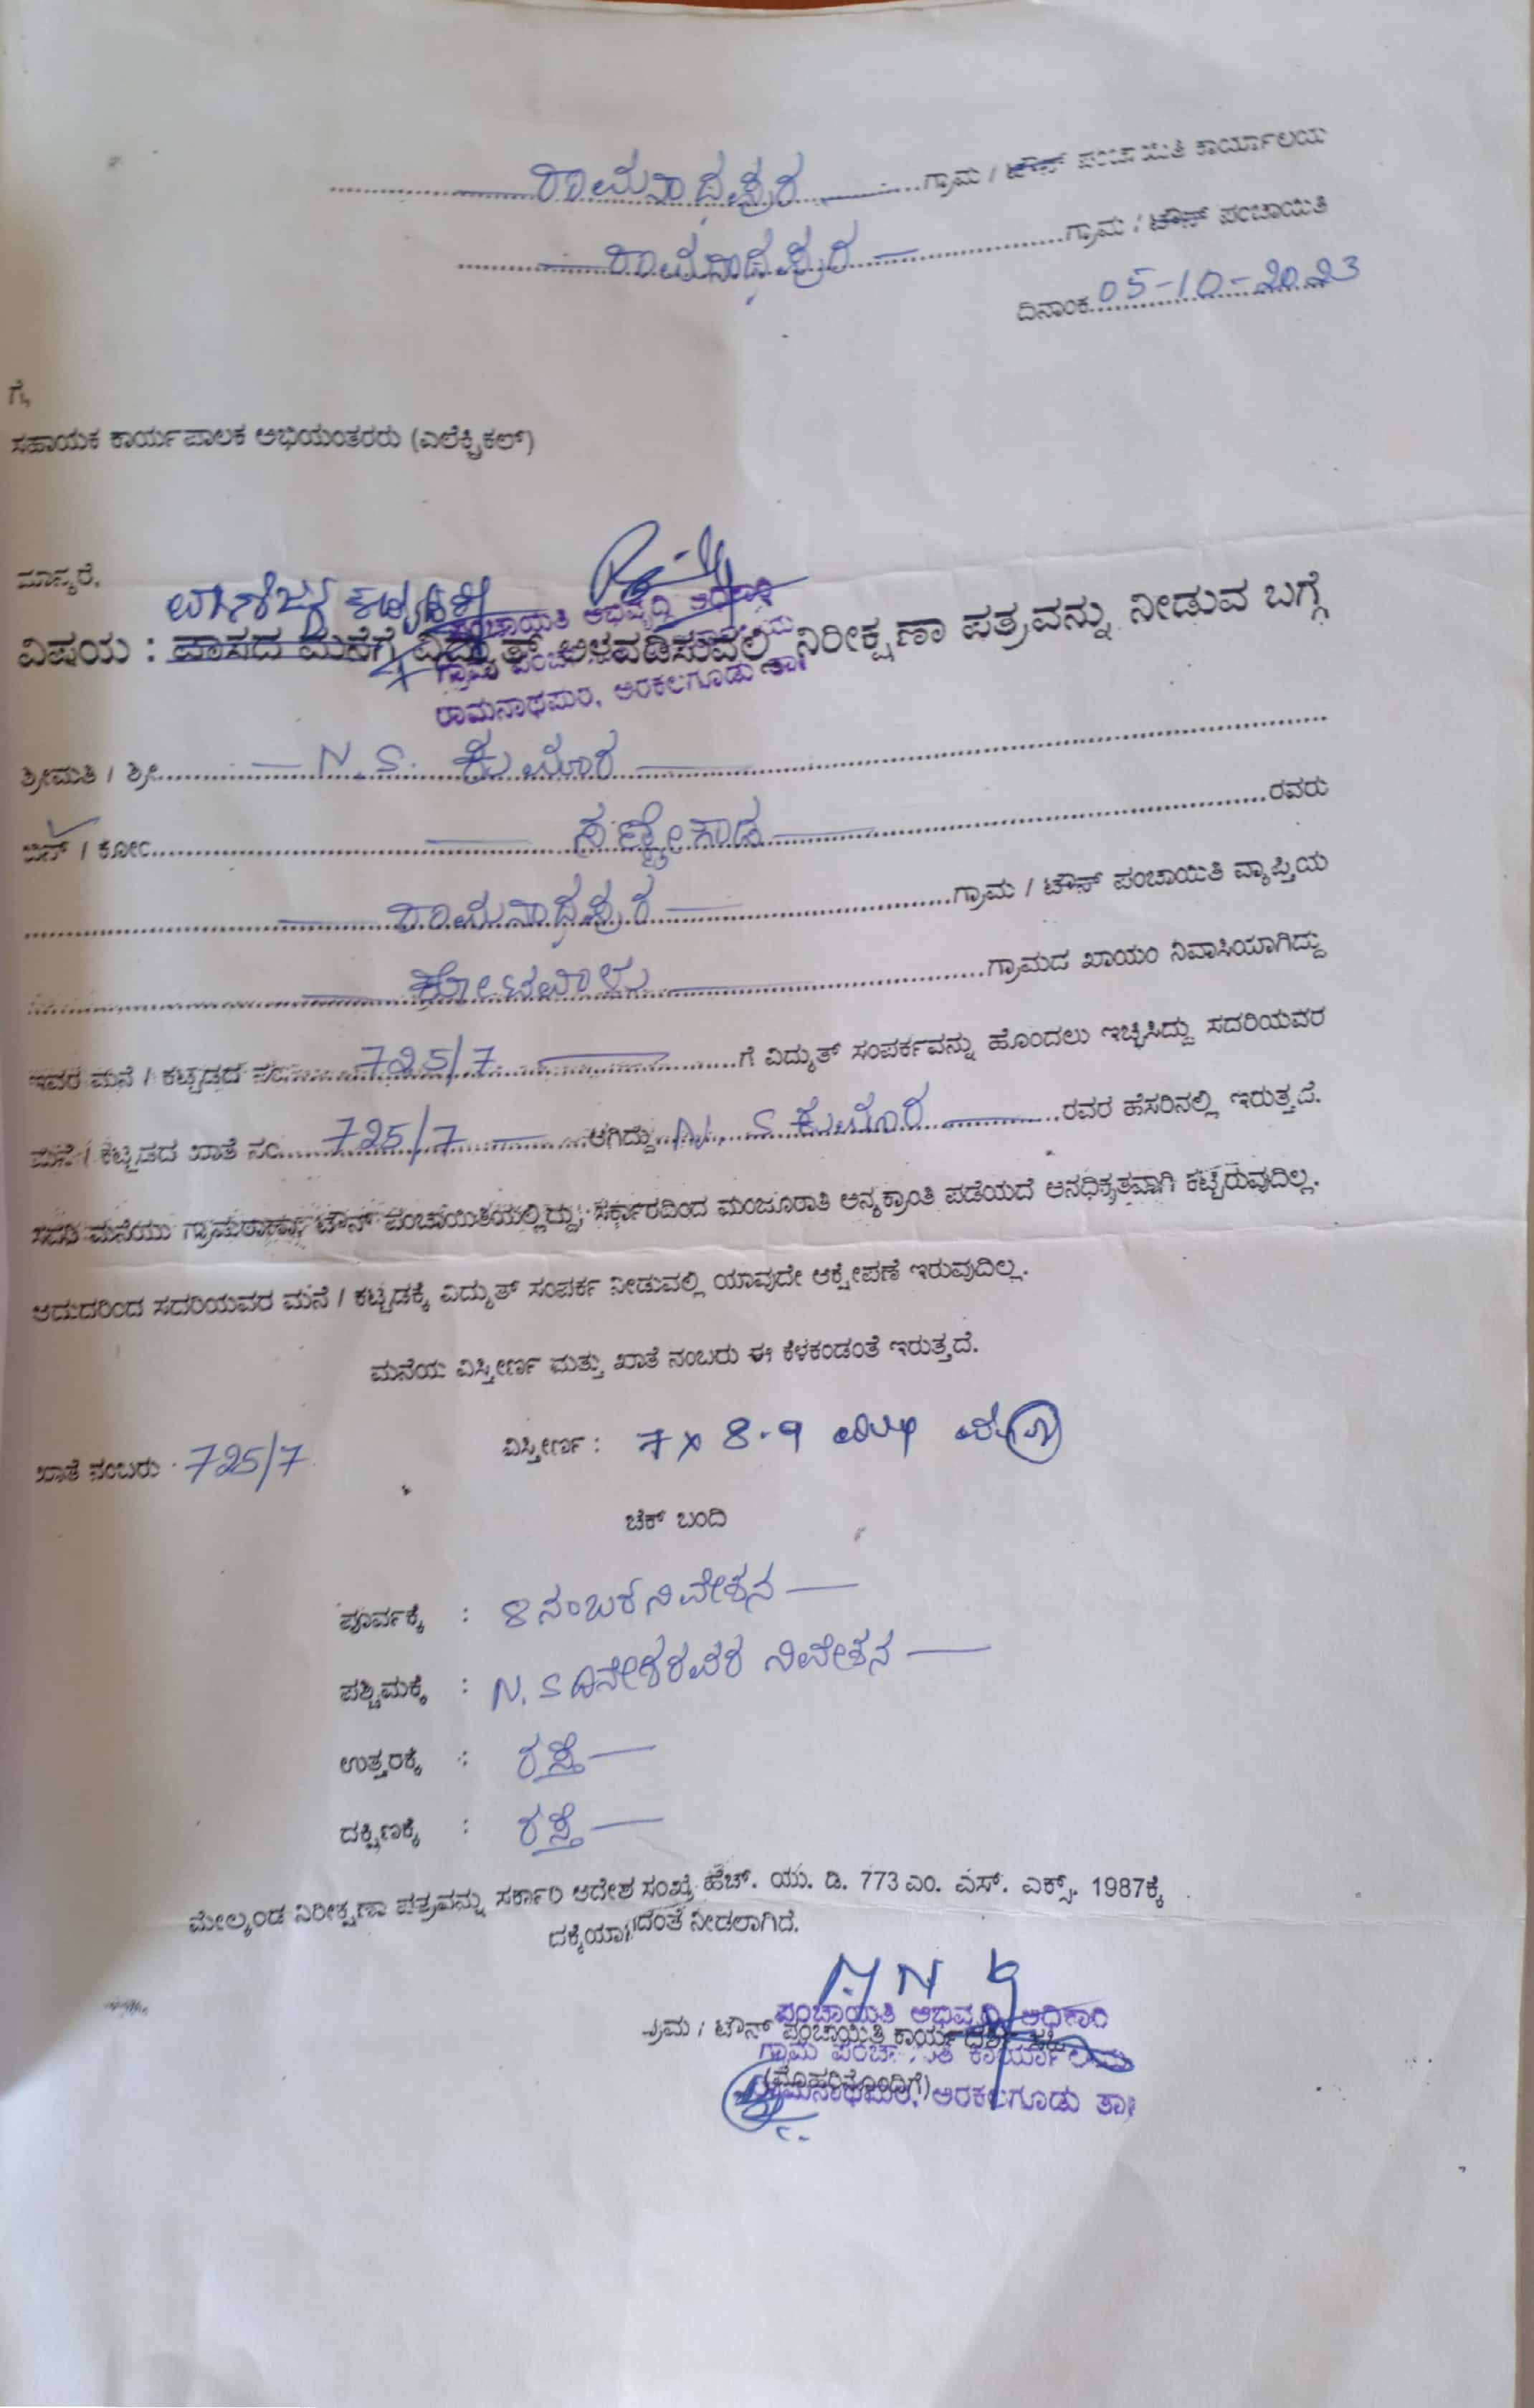 ರಾಮನಾಥಪುರ ಗ್ರಾಮ / ಟೌನ್ ಪಂಚಾಯಿತಿ ಕಾರ್ಯಾಲಯ
ರಾಮನಾಥಪುರ ಗ್ರಾಮ / ಟೌನ್ ಪಂಚಾಯಿತಿ
ದಿನಾಂಕ 05-10-2023
ಗೆ,
ಸಹಾಯಕ ಕಾರ್ಯಪಾಲಕ ಅಭಿಯಂತರರು (ಎಲೆಕ್ಟ್ರಿಕಲ್)
ಮಾನ್ಯರೆ,
ವಾಣಿಜ್ಯ ಕಟ್ಟಡಕ್ಕೆ
ಪಂಚಾಯತಿ ಅಭಿವೃದ್ಧಿ ಅಧಿಕಾರಿ
ವಿಷಯ : ವಾಸದ ಮನೆಗೆ ವಿದ್ಯುತ್ ಅಳವಡಿಸುವಲ್ಲಿ ನಿರೀಕ್ಷಣಾ ಪತ್ರವನ್ನು ನೀಡುವ ಬಗ್ಗೆ
ರಾಮನಾಥಪುರ, ಅರಕಲಗೂಡು ತಾ||
ಶ್ರೀಮತಿ / ಶ್ರೀ N.S. ಕುಮಾರ
ಬಿನ್ / ಕೋಂ ಸಣ್ಣೇಗೌಡ ರವರು
ರಾಮನಾಥಪುರ ಗ್ರಾಮ / ಟೌನ್ ಪಂಚಾಯಿತಿ ವ್ಯಾಪ್ತಿಯ
ಕೋಟವಾಳು ಗ್ರಾಮದ ಖಾಯಂ ನಿವಾಸಿಯಾಗಿದ್ದು
ಇವರ ಮನೆ / ಕಟ್ಟಡದ ನಂ. 725/7 ಗೆ ವಿದ್ಯುತ್ ಸಂಪರ್ಕವನ್ನು ಹೊಂದಲು ಇಚ್ಛಿಸಿದ್ದು ಸದರಿಯವರ
ಮನೆ / ಕಟ್ಟಡದ ಖಾತೆ ನಂ. 725/7 ಆಗಿದ್ದು N. S ಕುಮಾರ ರವರ ಹೆಸರಿನಲ್ಲಿ ಇರುತ್ತದೆ.
ಸದರಿ ಮನೆಯು ಗ್ರಾಮಠಾಣಾ/ ಟೌನ್ ಪಂಚಾಯಿತಿಯಲ್ಲಿದ್ದು, ಸರ್ಕಾರದಿಂದ ಮಂಜೂರಾತಿ ಅನ್ಯಕ್ರಾಂತಿ ಪಡೆಯದೆ ಅನಧಿಕೃತವಾಗಿ ಕಟ್ಟಿರುವುದಿಲ್ಲ.
ಆದುದರಿಂದ ಸದರಿಯವರ ಮನೆ / ಕಟ್ಟಡಕ್ಕೆ ವಿದ್ಯುತ್ ಸಂಪರ್ಕ ನೀಡುವಲ್ಲಿ ಯಾವುದೇ ಆಕ್ಷೇಪಣೆ ಇರುವುದಿಲ್ಲ.
ಮನೆಯ ವಿಸ್ತೀರ್ಣ ಮತ್ತು ಖಾತೆ ನಂಬರು ಈ ಕೆಳಕಂಡಂತೆ ಇರುತ್ತದೆ.
ಖಾತೆ ನಂಬರು 725/7 ವಿಸ್ತೀರ್ಣ : 7 x 8.9
ಚೆಕ್ ಬಂದಿ
ಪೂರ್ವಕ್ಕೆ : 8 ನಂಬರ್ ನಿವೇಶನ
ಪಶ್ಚಿಮಕ್ಕೆ : N. S ದಿನೇಶರವರ ನಿವೇಶನ
ಉತ್ತರಕ್ಕೆ : ರಸ್ತೆ
ದಕ್ಷಿಣಕ್ಕೆ : ರಸ್ತೆ
ಮೇಲ್ಕಂಡ ನಿರೀಕ್ಷಣಾ ಪತ್ರವನ್ನು ಸರ್ಕಾರಿ ಆದೇಶ ಸಂಖ್ಯೆ ಹೆಚ್. ಯು. ಡಿ. 773 ಎಂ. ಎಸ್. ಎಕ್ಸ್. 1987ಕ್ಕೆ
ನೀಡಲಾಗಿದೆ.
ಪಂಚಾಯತಿ ಅಭಿವೃದ್ಧಿ ಅಧಿಕಾರಿ
ಗ್ರಾಮ / ಟೌನ್ ಪಂಚಾಯಿತಿ ಕಾರ್ಯದರ್ಶಿ ಸಹಿ
ಗ್ರಾಮ ಪಂಚಾಯಿತಿ ಕಾರ್ಯಾಲಯ
(ಮೊಹರಿನೊಂದಿಗೆ)
ರಾಮನಾಥಪುರ, ಅರಕಲಗೂಡು ತಾ||